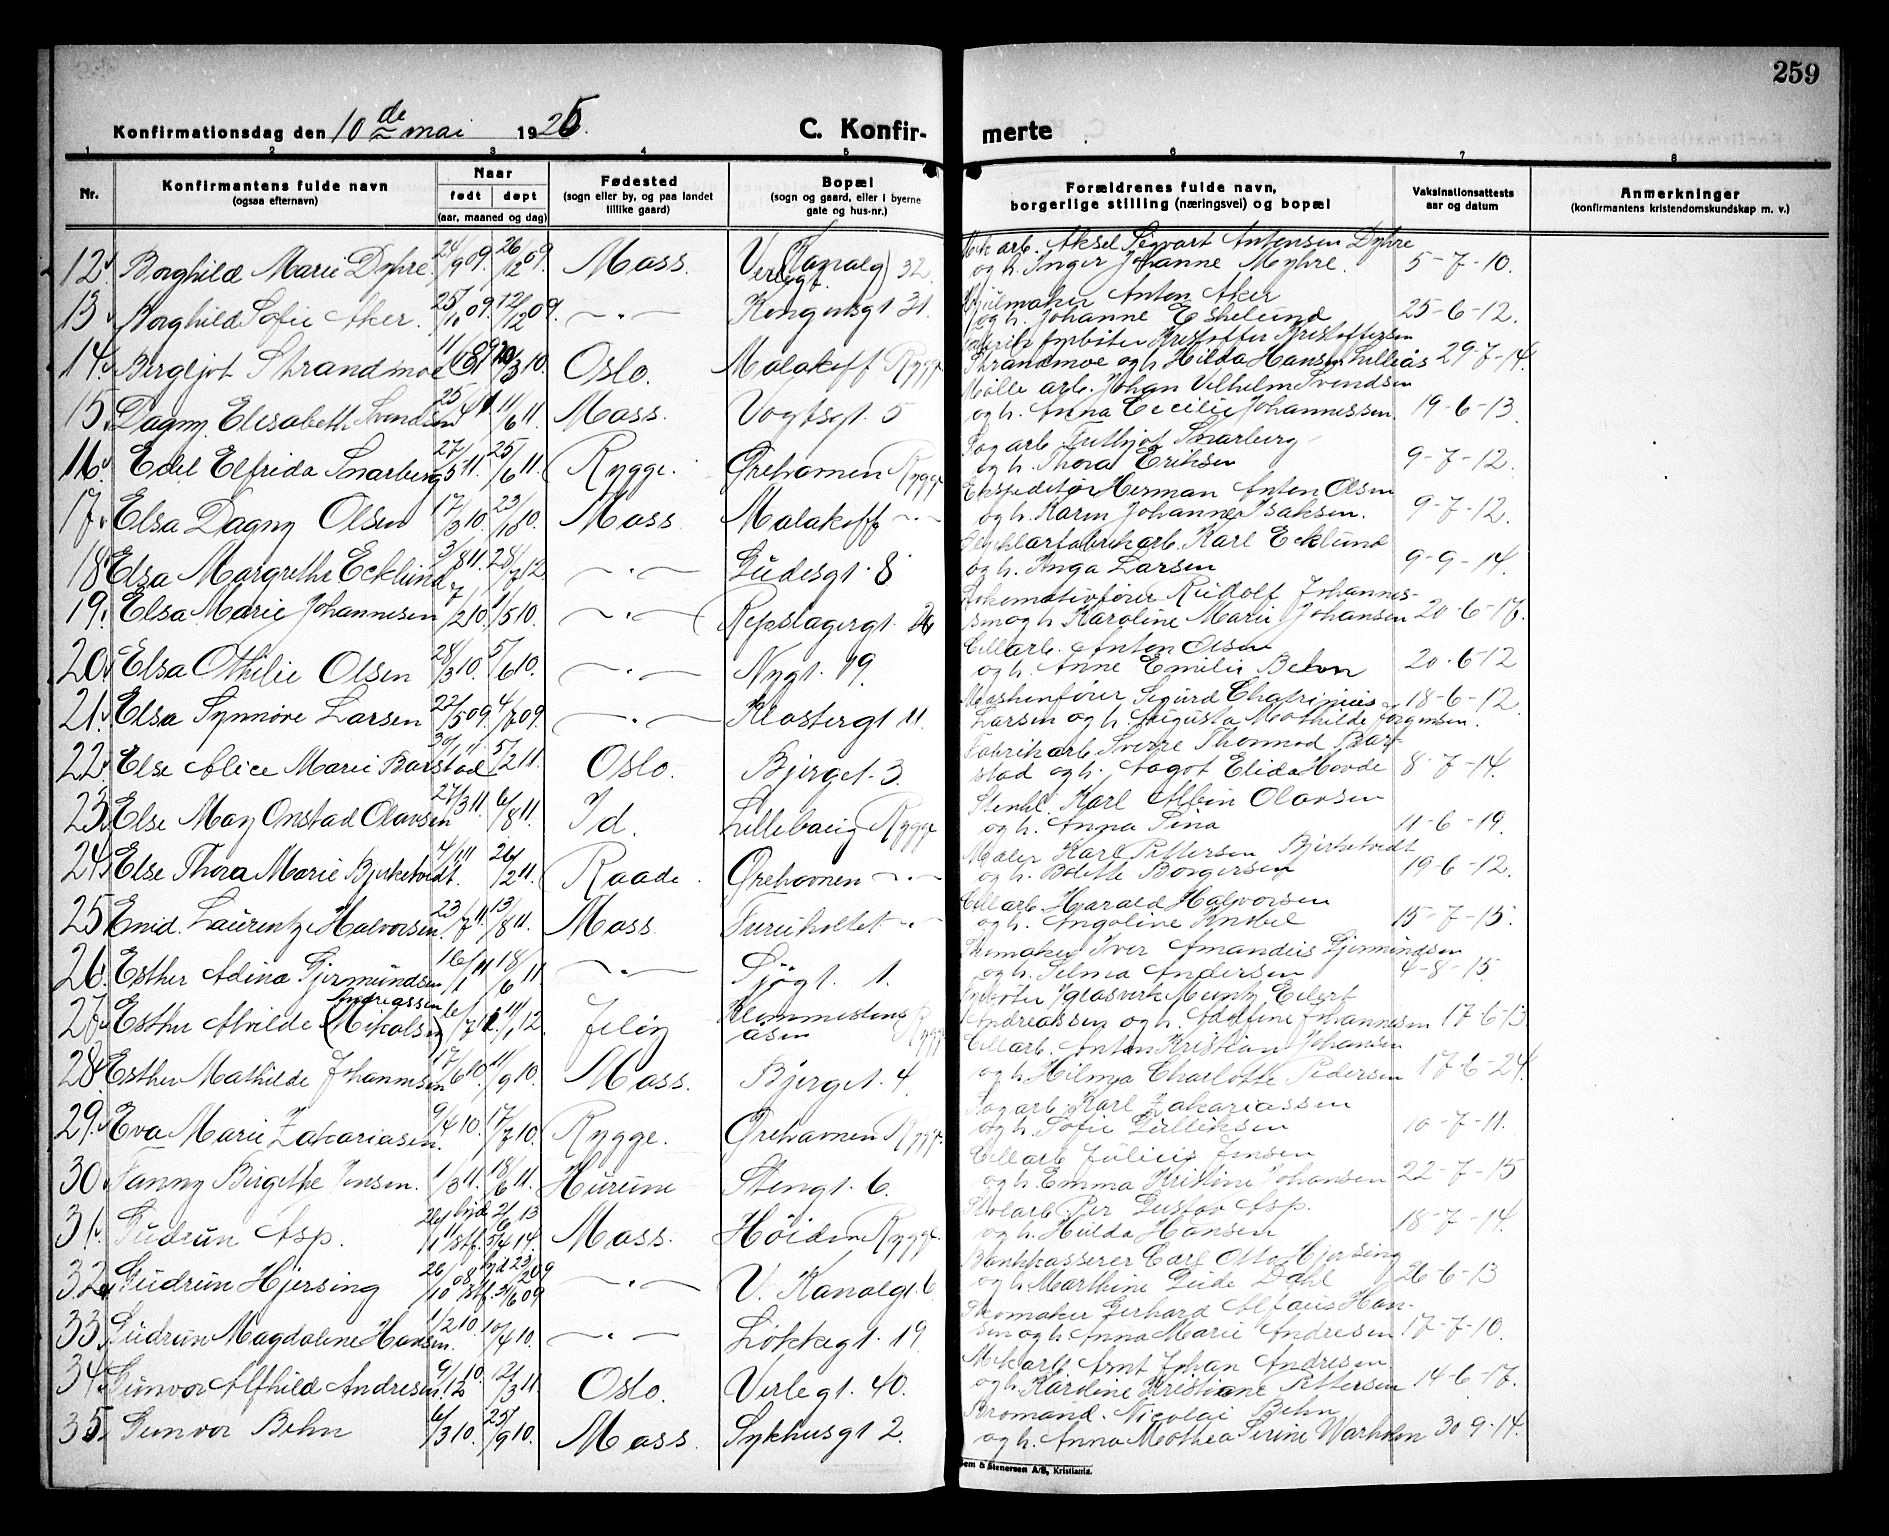 259
Konfirmationsdag den 10de mai 1925.
C. Konfir-
merte
1 2 3 4 5 6 7 8
Nr.
Konfirmantens fulde navn
(ogsaa efternavn)
Naar
født døpt
(aar, maaned og dag)
Fødested
(sogn eller by, og paa landet
tillike gaard)
Bopæl
(sogn og gaard, eller i byerne
gate og hus-nr.)
Forældrenes fulde navn,
borgerlige stilling (næringsvei) og bopæl
Vaksinationsattests
aar og datum
Anmerkninger
(konfirmantens kristendomskundskap m. v.)
12 Borghild Marie Dyhre. 24/9 09. 26/12 09. Moss. V. Kanalg 32. arb. Aksel Sigvart Antonsen Dyhre
og h. Inger Johanne Myhre. 5-7-10.
13 Borghild Sofie Aker. 12/12 09. —"— Kongensgt 31. Hjulmaker Anton Aker
og h. Johanne Eskelund 25-6-12.
14 Bergljot Strandmoe Oslo. Malakoff Rygge fyrbøter Kristoffer Kristoffersen
Strandmoe og h. Hilda Hansen Lilleås 29-7-14.
15 Dagny Elisabeth Svendsen 11/6 11. Moss. Vogtsgt. 5 Mølle arb. Johan Vilhelm Svendsen
og h. Anna Cecilie Johannessen 19-6-13.
16 Edel Elfrida Snarberg 27/5 11. 25/6 11. Rygge. Ørehavnen Rygge Sag arb. Snarberg
og h. Thora Eriksen 9-7-12.
17 Elsa Dagny Olsen 17/3 10. 23/10 10. Moss. Malakoff —"— Ekspeditør Herman Anton Olsen
og h. Karin Johanne Isaksen. 9-7-12.
18 Elsa Margrethe Ecklund 3/8 11. 28/7 12. —"— Gudesgt. 8 Karl Ecklund
og h. Inga Larsen 9-9-14.
19 Elsa Marie Johannesen 7/2 10. 1/5 10. —"— Repslagergt. Lokomotivfører Rudolf Johannes-
sen og h. Karoline Marie Johansen 20-6-17.
20 Elsa Othilie Olsen 28/3 10. 5/6 10. —"— Nygt. 19. Cellarb. Anton Olsen
og h. Anne Emilie Behn 20-6-12
21 Elsa Synnøve Larsen 23/5 09. 4/7 09. —"— Klostergt 11. Maskenfører Sigurd
Larsen og h. Augusta Mathilde Jørgensen. 18-6-12.
22 Else Alice Marie Barstad 5/2 11. Oslo. Bjerget. 3. Fabrikarb. Sverre Thormod Bar-
stad og h. Aagot Elida Hovde 8-7-14.
23 Else May Onstad Olavsen 27/3 11. 6/8 11. Id. Rygge Karl Albin Olavsen
og h. Anna Sina 11-6-19.
24 Else Thora Marie Bjerketvedt. 26/2 11. Raade. Ørehavnen —"— Maler Karl Pettersen Bjerketvedt
og h. Bolette Borgersen 19-6-12.
25 Enid. Laurentze Halvorsen 23/7 11. 13/8 11. Moss. Furuholtet —"— Cellarb. Harald Halvorsen
og h. Angoline Knobel 15-7-15.
26 Esther Adina Gjermundsen 16/1 11 18/6 11. —"— Sjøgt. 1. Skomaker Iver Amandus Gjermundsen
og h. Selma Andersen 4-8-15
27 Esther Alvilde (Mikalsen) Andreassen 14/1 12. Jeløy Rygge Eilert
Andreassen og h. Adolfine Johannesen 17-6-13
28 Esther Mathilde Johannesen 17/6 10. 11/9 10. Moss. Bjerget. 4. Cellarb. Anton Kristian Johansen
og h. Hilma Charlotte Pedersen 17-6-24.
29 Eva Marie Zakariasen. 9/4 10. 17/7 10. Rygge. Ørehavnen Rygge. Sag arb. Karl Zakariassen
og h. Sofie Gulliksen 10-7-11.
30 Fanny Birgethe Jensen. 1/3 11. 18/6 11. Hurum Stengt. 6. Cellarb Julius Jensen
og h. Emma Kristine Johansen 22-7-15
31 Gudrun Asp. Moss. Høiden Rygge Per Gustav Asp.
og h. Hulda Hansen 18-7-14.
32 Gudrun Hjersing 26/10 08 —"— V. Kanalgt. 6 Bankkasserer Carl Otto Hjersing
og h. Marthine Gude Dahl 26-6-13
33 Gudrun Magdalene Hansen. 1/2 10. 10/4 10. —"— Løkkegt. 19 Skomaker Gerhard Alfæus Han-
sen og h. Anna Marie Andresen 17-7-10.
34 Gunvor Alfhild Andresen 9/12 10. 12/3 11. Oslo. Verlegt. 40. Mek arb Arnt Johan Andresen
og h. Karoline Kristiane Pettersen 14-6-17.
35 Gunvor Behn 6/3 10. 25/9 10. Moss. Sykhusgt 2. Bromand. Nicolai Behn
og h. Anna Mathea Sirine Warholm 30-9-14.
Sem & Stenersen A/S, Kristiania.